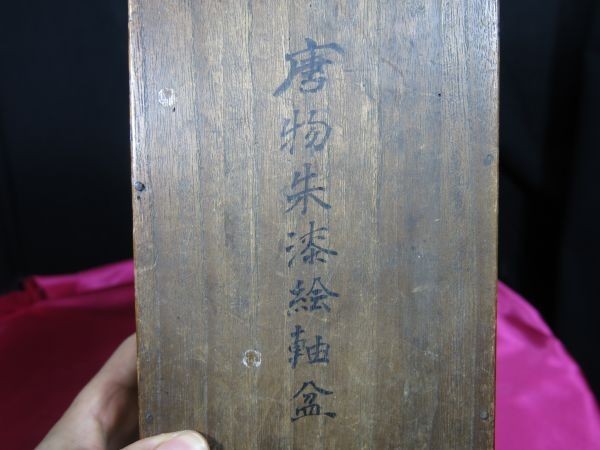 唐物朱漆絵軸盆